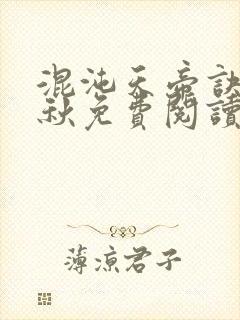 混沌天帝訣
秋免費閱讀
薄涼君子